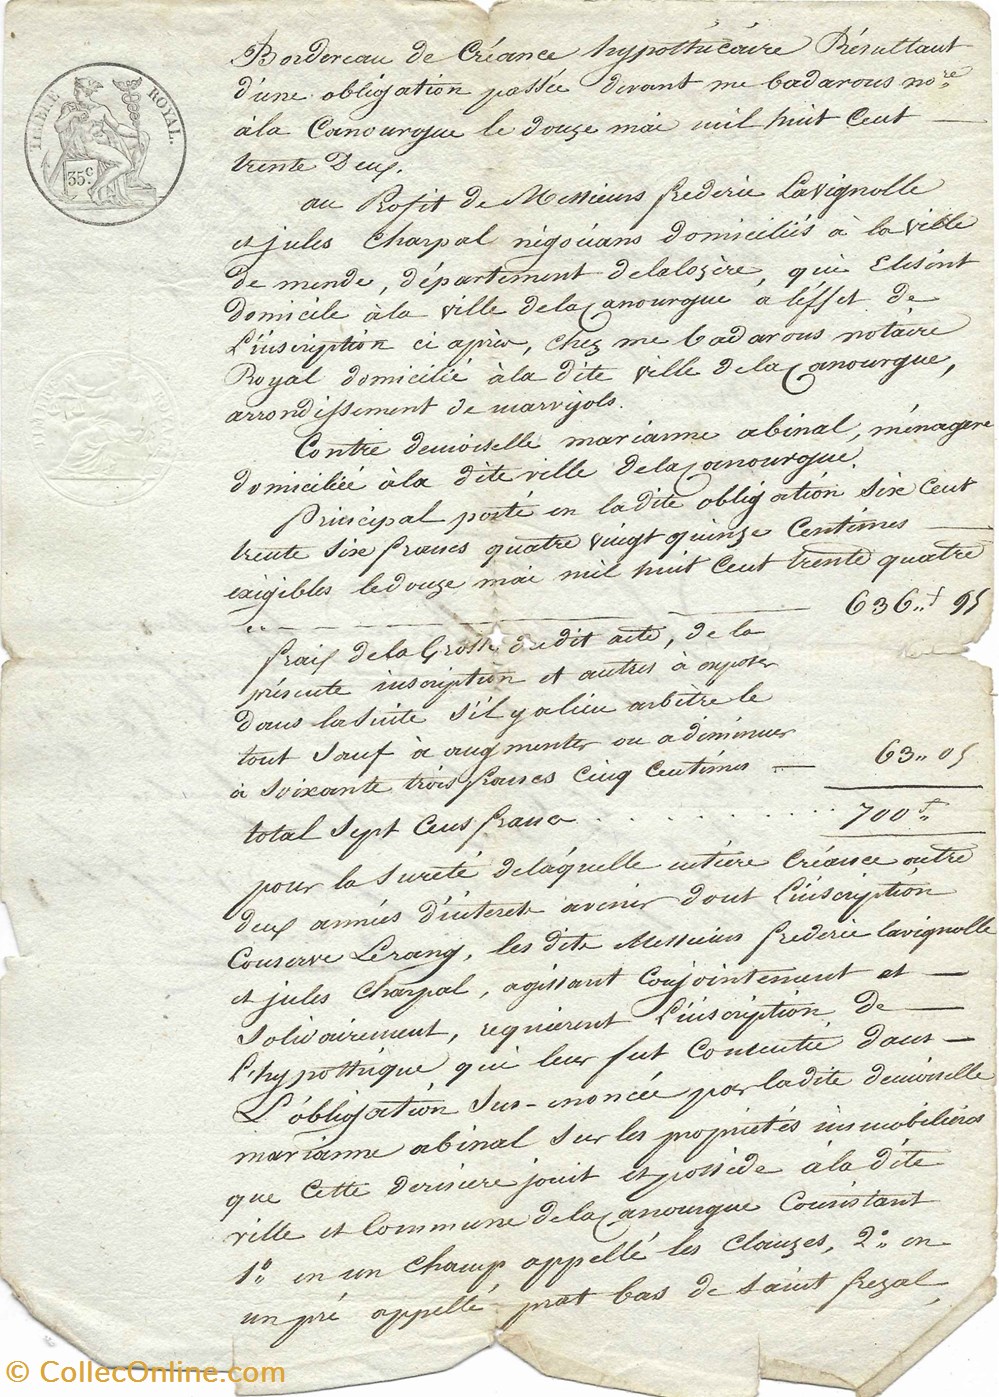 TIMBRE ROYAL.
35.c
Bordereau de Créance hypothécaire Résultant
d'une obligation passée devant me badarous nore
à la Canourgue le douze mai mil huit cent
trente Deux.
au Profit de Messieurs frederic Lavignolle
et jules Charpal négocians domiciliés à la ville
de mende, département de la lozère, qui Elisent
domicile à la ville de la Canourgue à l'éffet de
L'inscription ci après, chez me badarous notaire
Royal domicilié à la dite ville de la Canourgue,
arrondissement de marvijols.
Contre demoiselle marianne abinal, ménagere
domiciliée à la dite ville de la Canourgue.
Principal porté en la dite obligation six cent
trente six francs quatre vingt quinze Centimes
exigibles le douze mai mil huit cent trente quatre
636,, f 95
frais de la Grosse du dit acte, de la
présente inscription et autres à exposer
dans la suite s'il y a lieu arbitre le
tout sauf à augmenter ou à diminuer
à soixante trois francs cinq centimes — 63,, 05
total sept cens francs . . . . . . . . . . 700 f,,
pour la sureté de laquelle entière Créance outre
deux années d'interets avenir dont L'inscription
Conserve Le rang, les dits Messieurs frederic lavignolle
et jules Charpal, agissant conjointement et —
solidairement, requièrent L'inscription de —
L'hypothèque qui leur fut consentie dans —
L'obligation sus-énoncée par la dite demoiselle
marianne abinal sur les propriétés immobilières
que cette dernière jouit et possède à la dite
ville et Commune de la Canourgue Consistant
1o en un champ appellé les clauzes, 2o en
un pré appellé prat bas de saint frezal,
© CollecOnline.com